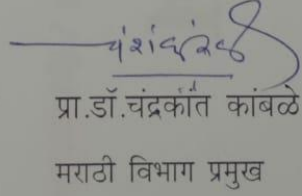 प्रा.डॉ.चंद्रकांत कांबळे
मराठी विभाग प्रमुख